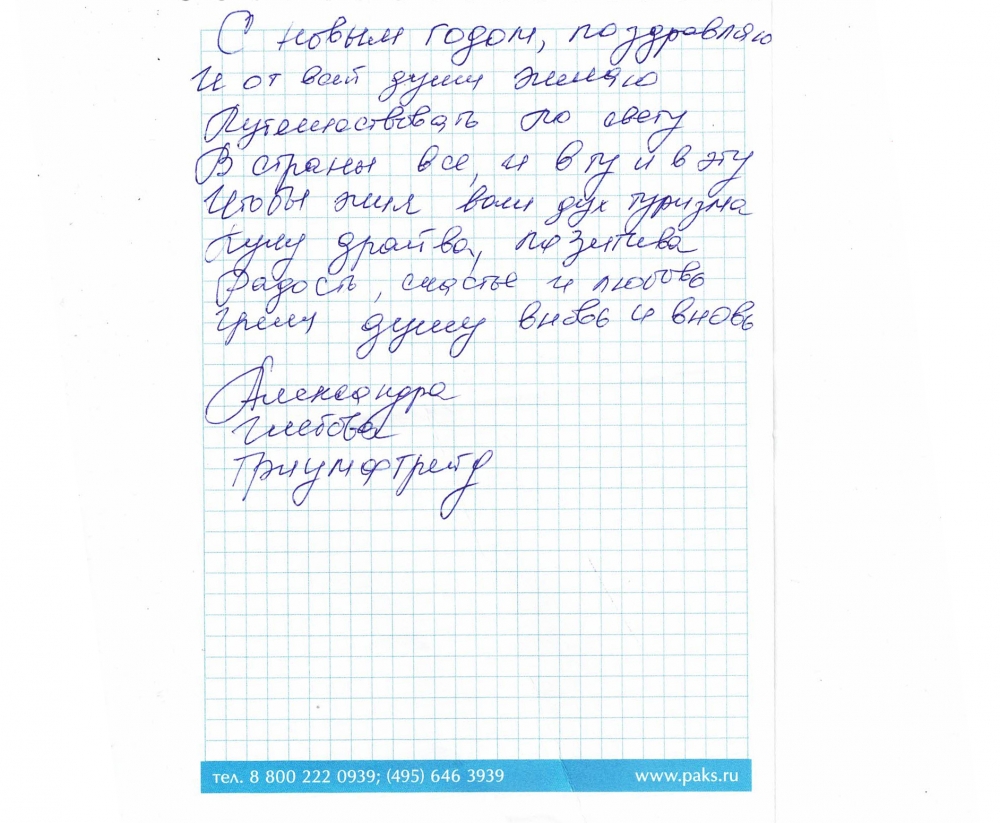 С новым годом, поздравляю
И от всей души желаю
Путешествовать по свету
В страны все, и в ту и в эту
Чтобы жил вам дух туризма
Кучу драйва, позитива
Радость, счастье и любовь
Грели душу вновь и вновь
Александра
Глебова
Триумфтрейд
тел. 8 800 222 0939; (495) 646 3939
www.paks.ru